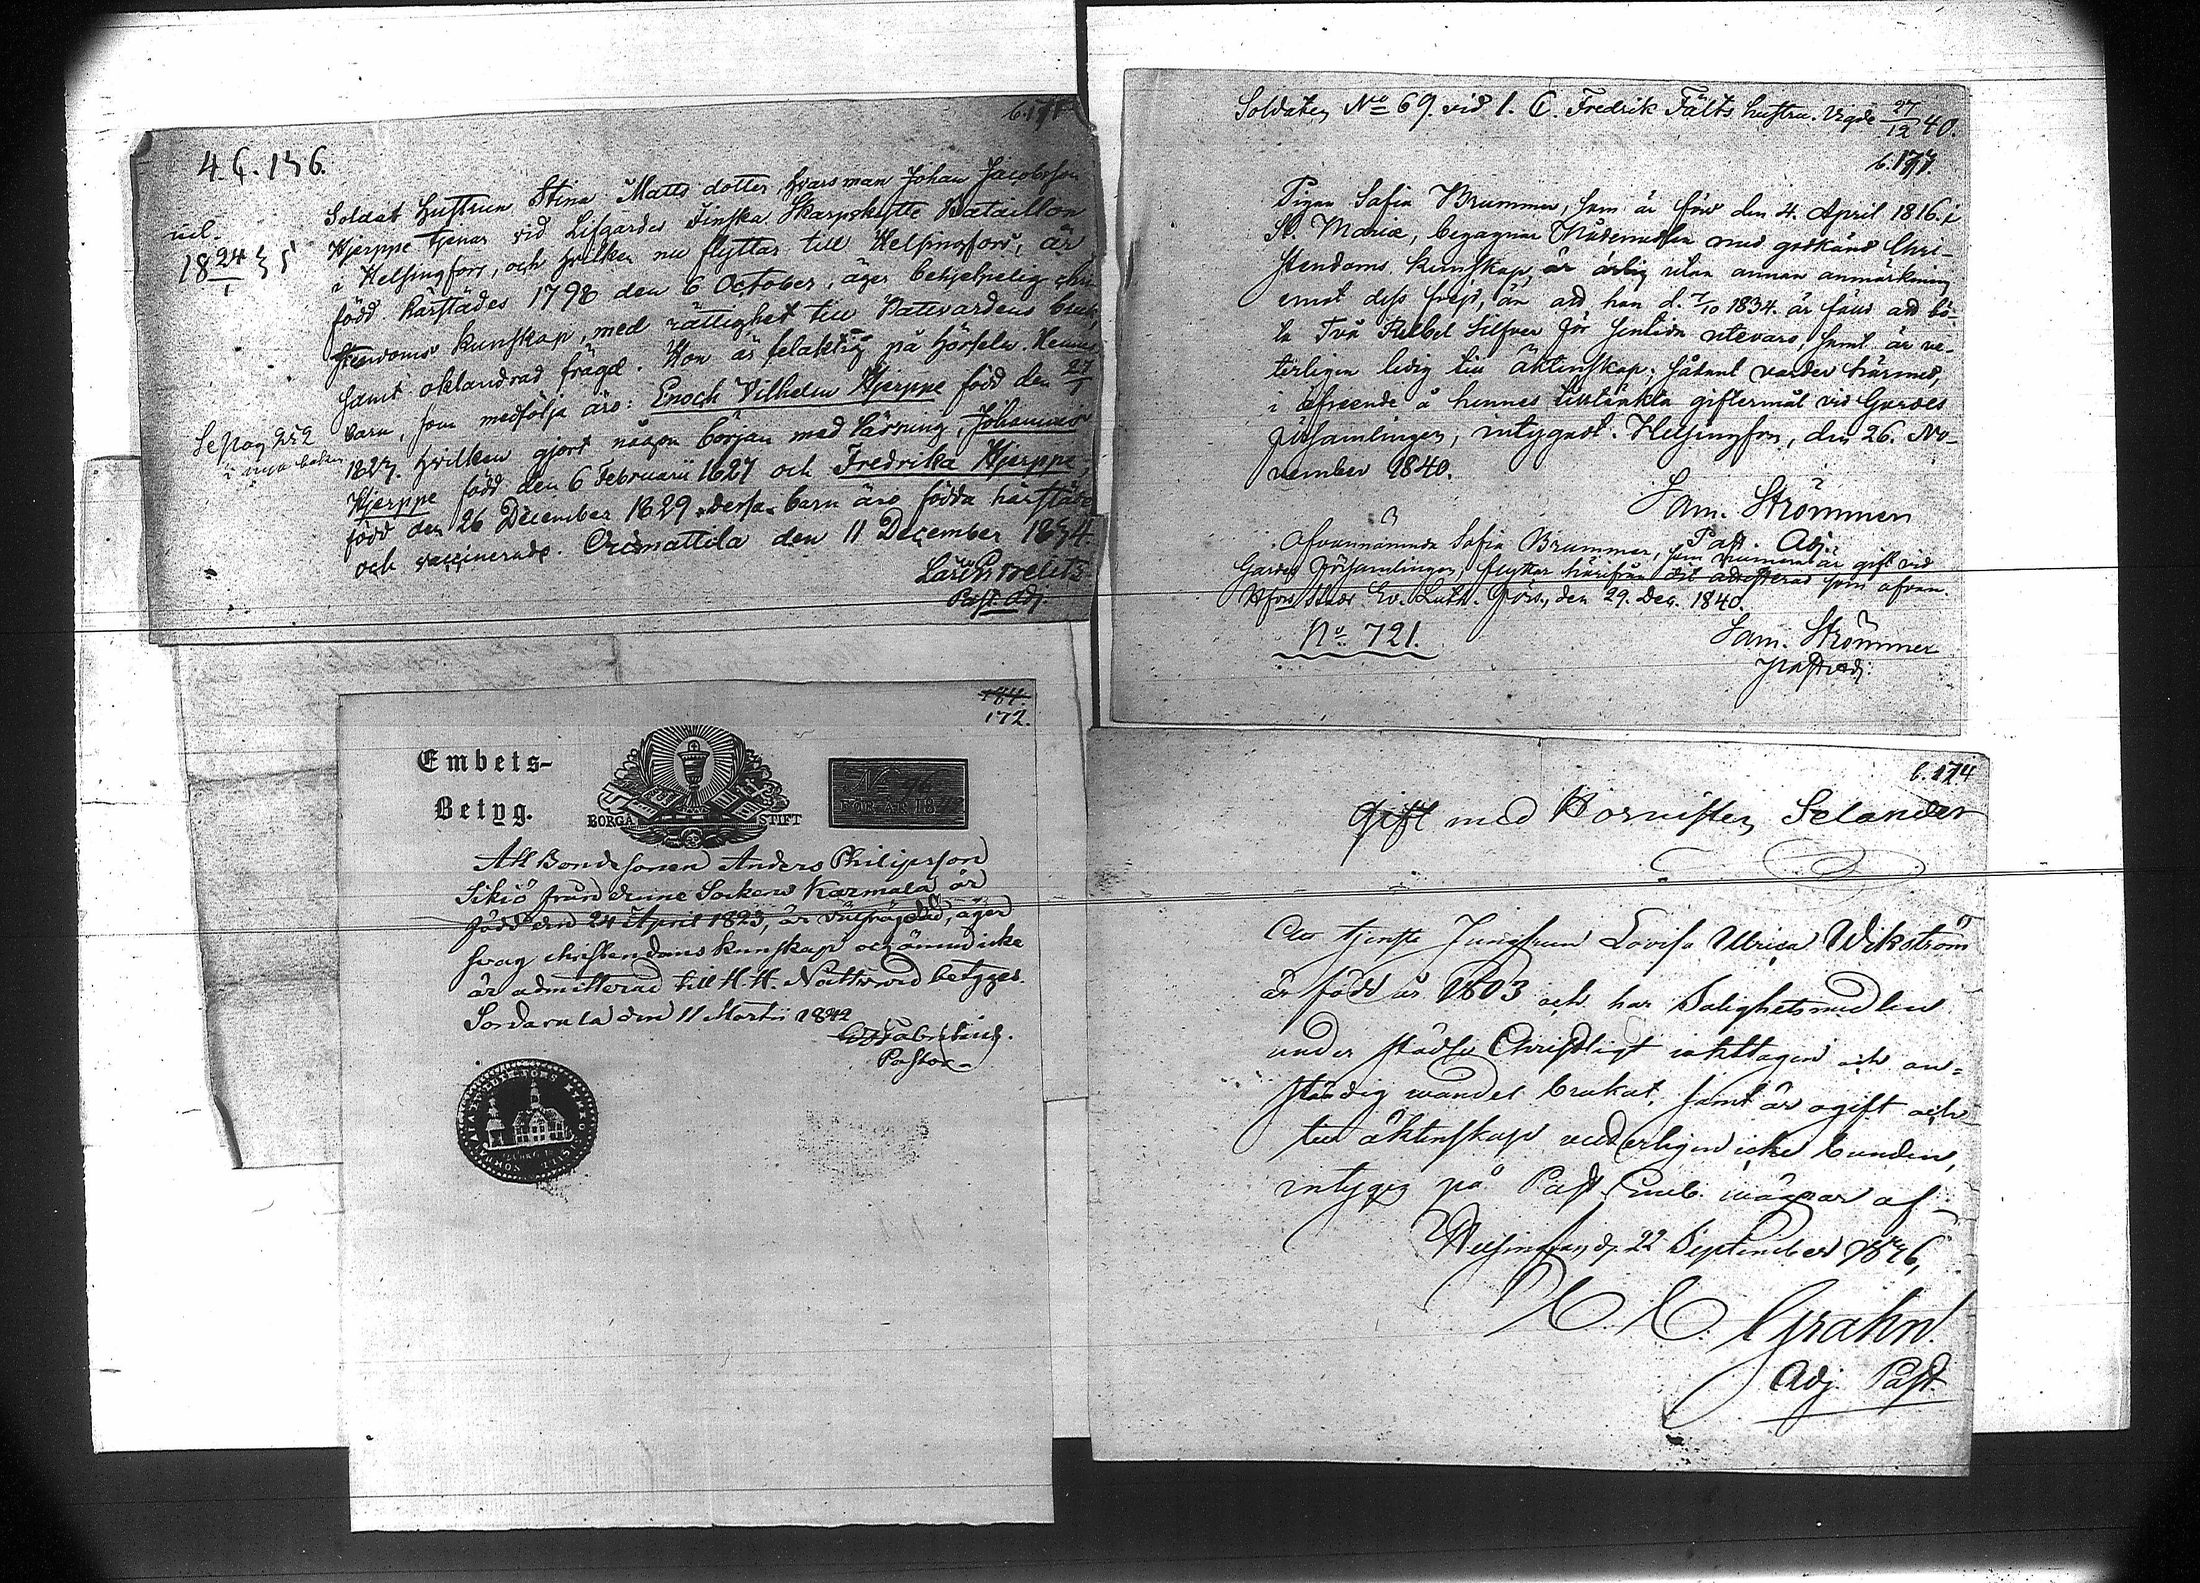 b. 171
4. C. 136.
inl.
18 24/1 35
Soldats Hustrun Stina Matts dotter, hvars man Johan Jacobsson
Hjerppe tjenar vid Lifgardes Finska Skarpskytte Bataillon
i Helsingfors, och hvilken nu flyttar till Helsingfors, är
född härstädes 1798 den 6 October, äger behjelpelig chri-
stendoms kunskap, med rättighet till Nattvardens bruk,
samt oklandrad frägd. Hon är felaktig på hörseln. Hennes
barn, som medfölja äro: Enoch Vilhelm Hjerppe född den 27/
Se pag 252
i nya boken
1823. hvilken gjort någon början med läsning, Johannes
Hjerppe född den 6 Februarii 1827 och Fredrika Hjerppe,
född den 26 December 1829. dessa barn äro födda härstädes
och vaccinerade. Orimattila den 11 December 1834.
Past. Adj.
Soldaten No 69. vid 1. C. Fredrik Fälts hustru. Vigde 27/12 40.
b. 177.
Pigan Sofia Brummer, som är född den 4. April 1816. i
St. Mariæ, begagnar Nådemedlen med godkänd Chri-
stendoms kunskap, är ärlig utan annan anmärkning
emot dess frejd, än att hon d. 7/10 1834. är fäld att bö-
ta Två Rubel Silfver för sentida utevaro, samt är ve-
terligen ledig till äktenskap; sådant varder härmed,
i afseende å hennes tilltänkta giftermål vid Gardes
församlingen, intygadt. Helsingfors, den 26. No-
vember 1840.
Sam. Strömmer
Past. Adj.
Ofvannämnda Sofia Brummer, som numera är gift vid
Gardes församlingen, flyttar härifrån dit attesterad som ofvan.
Hfors stads Ev. Luth. förs., den 29. Dec. 1840.
No. 721.
Sam. Strömmer
past. adj.
184.
172.
Embets-
Betyg.
BORGÅ STIFT
No 76
FÖR ÅR 18
Att Bondesonen Anders Philipsson
Sikiö från denne Socken Karmala är
född den 24 April 1823, är välfrägdad, äger
svag christendoms kunskap och ännu icke
är admitterad till H. H. Nattvard betyges.
Sordavala den 11 Martii 1842
Pastor
b. 174
Gift med Hornisten Selander
Att tjenste Jungfrun Lovisa Ulrica Wikström
är född år 1803 och har Salighetsmedlen
under städse Christligt iakttagen och an-
ständig wandel brukat, samt är ogift och
till äktenskap vederligen icke bunden,
intygas på Past. Emb. wägnar af
Helsingfors d. 22 September 1836,
C. C. Grahn.
Adj. Past.